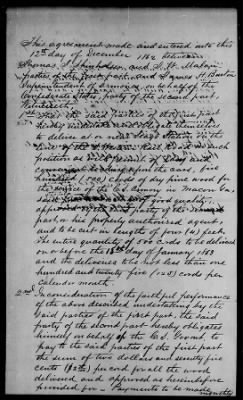 This agreement made and entered into this
12th day of December 1862 between
Thomas J. and
parties of the first part, and James H. Burton
Superintendent of Armories, on behalf of the
Confederate States, party of the second part
Witnesseth
1st That the said parties of the first part
hereby and obligate themselves
to deliver at or near Station on the
line of the Rail Road in such
position as will of easy and
convenient the cars, five
hundred (500) cords of dry pine wood for
the service of the C.S. Armory in Macon Ga,
said of good quality,
approved by the party of the second
part, or his properly authorized agent,
and to be cut in lengths of four (4) feet.
The entire quantity of 500 cords to be delivered
on or before the day of January 1863
and the deliveries to be not less than one
hundred and twenty five (125) cords per
calendar month.
2nd In consideration of the faithful performance
of the above described undertaking by the
said parties of the first part, the said
party of the second part hereby obligates
himself on behalf of the C.S. Govmt. to
pay to the said parties of the first part
the sum of two dollars and seventy five
cents per cord for all the wood
delivered and approved as hereinbefore
provided for - Payments to be made
monthly